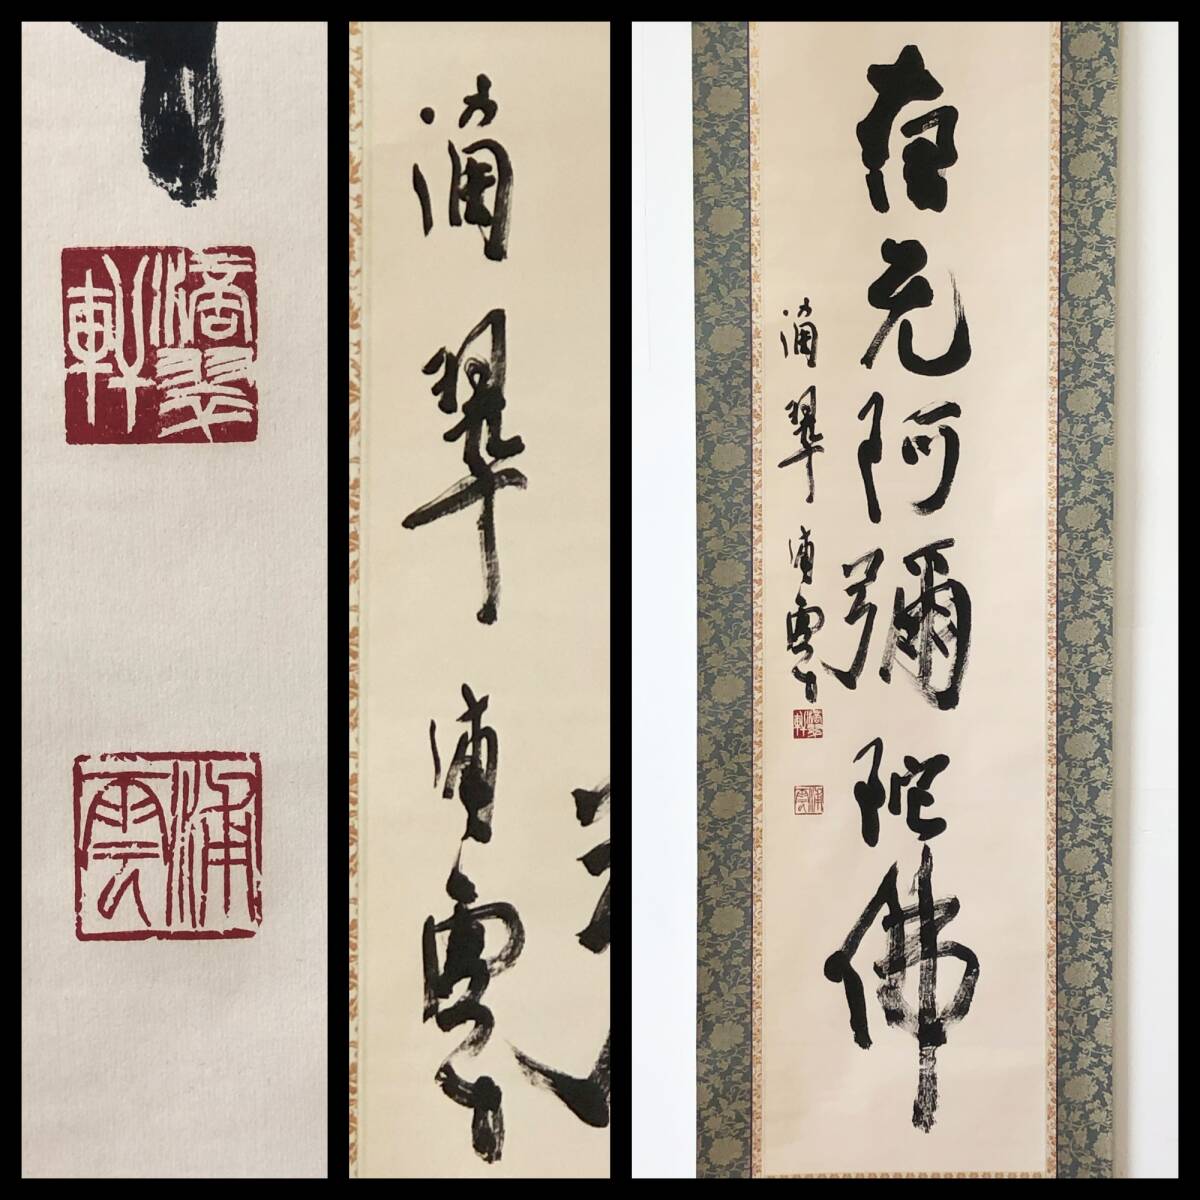 滴翠軒
浦雲
滴翠浦雲
南无阿彌陀佛
滴翠浦雲
滴翠軒
浦雲